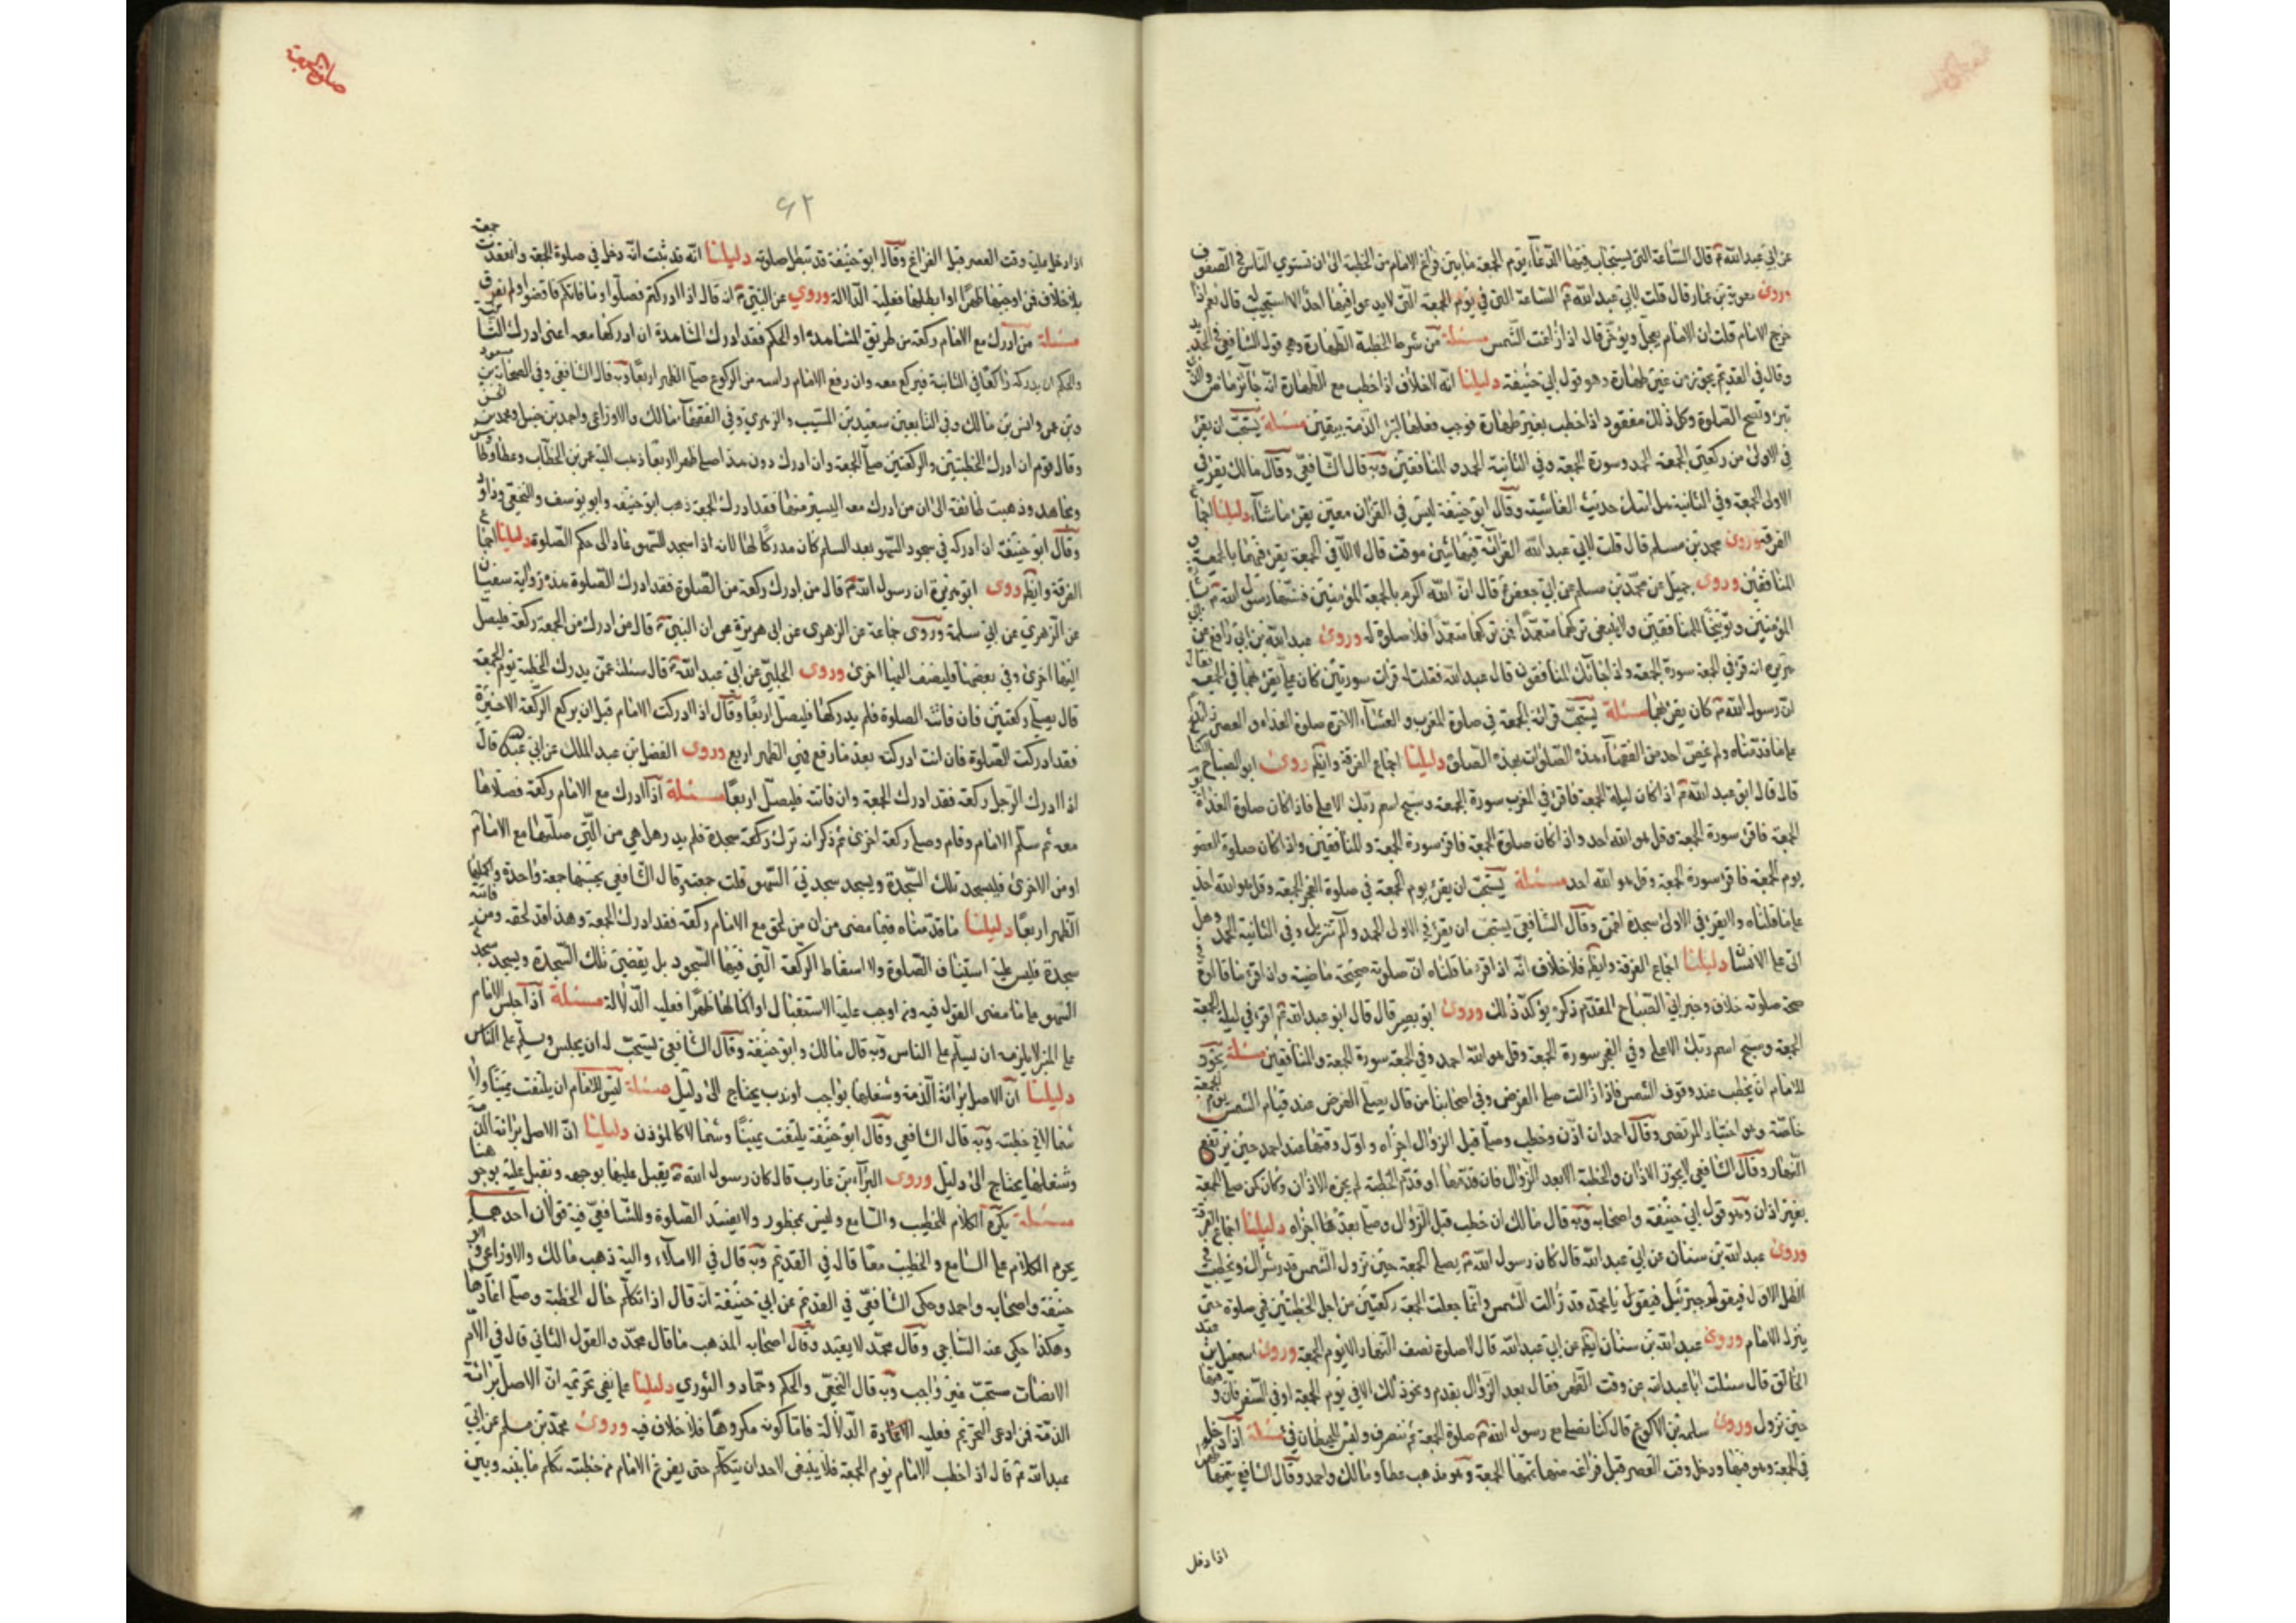 عن ابي عبد الله ع قال الساعة التي يستجاب فيها الدعاء يوم الجمعة ما بين فراغ الامام من الخطبة الى ان تستوي الناس في الصفوف
وروى معوية بن عمار قال قلت لابي عبد الله ع الساعة التي في يوم الجمعة التي لا يدعو فيها احد الا استجيب له قال نعم اذا
خرج الامام قلت ان الامام يعجل ويؤخر قال اذا زاغت الشمس مسئلة من شرط الخطبة الطهارة وهو قول الشافعي في الجديد
وقال في القديم يجوز من غير طهارة وهو قول ابي حنيفة دليلنا انه لا خلاف اذا خطب مع الطهارة انه جائز ماض والذمة
تبرء وتصح الصلوة وكل ذلك مفقود اذا خطب بغير طهارة فوجب فعلها لتبرء الذمة بيقين مسئلة يستحب ان يقرء
في الاولى من ركعتي الجمعة الحمد وسورة الجمعة وفي الثانية الحمد والمنافقين وبه قال الشافعي وقال مالك يقرء في
الاولى الجمعة وفي الثانية هل اتيك حديث الغاشية وقال ابو حنيفة ليس في القران معين يقرء ما شاء دليلنا اجماع
الفرقة وروى محمد بن مسلم قال قلت لابي عبد الله القرائة فيها شئ موقت قال لا الا في الجمعة يقرء فيها بالجمعة و
المنافقين وروى جميل عن محمد بن مسلم عن ابي جعفر ع قال ان الله اكرم بالجمعة المؤمنين فسنها رسول الله ص بشارة
المؤمنين وتوبيخا للمنافقين ولا ينبغي تركهما متعمدا فمن تركهما متعمدا فلا صلوة له وروى عبد الله بن ابي رافع عن
انه قرء في الجمعة سورة الجمعة واذا جائك المنافقون قال عبد الله فقلت له قرات سورتين كان علي يقرء بهما في الجمعة فقال
ان رسول الله ص كان يقرء بهما مسئلة يستحب قرائة الجمعة في صلوة المغرب والعشاء الاخرة صلوة الغداة والعصر
على ما قدمناه ولم يخص احد من الفقهاء هذه الصلوات بهذه الصلوة دليلنا اجماع الفرقة وايضا روى ابو الصباح الكناني
قال قال ابو عبد الله ع اذا كان ليلة الجمعة فاقرء في المغرب سورة الجمعة وسبح اسم ربك الاعلى فاذا كان صلوة الغداة
الجمعة فاقرء سورة الجمعة وقل هو الله احد واذا كان صلوة الجمعة فاقرء سورة الجمعة والمنافقين واذا كان صلوة العصر
يوم الجمعة فاقرء سورة الجمعة وقل هو الله احد مسئلة يستحب ان يقرء يوم الجمعة في صلوة الفجر الجمعة وقل هو الله احد
على ما قلناه ولا يقرء في الاولى سجدة لقمن وقال الشافعي يستحب ان يقرء في الاولى الحمد والم تنزيل وفي الثانية الحمد وهل
اتى على الانسان دليلنا اجماع الفرقة وايضا فلا خلاف انه اذا قرء ما قلناه ان صلوته صحيحة ماضية واذا قرء ما قالوه
صحة صلوته خلاف وخبر ابي الصباح المقدم ذكره يؤكد ذلك وروى ابو بصير قال قال ابو عبد الله ع اقرء في ليلة الجمعة
الجمعة وسبح اسم ربك الاعلى وفي الفجر سورة الجمعة وقل هو الله احد وفي الجمعة سورة الجمعة والمنافقين مسئلة يجوز
للامام ان يخطب عند وقوف الشمس فاذا زالت صلى الفرض وفي اصحابنا من قال يصلي الفرض عند قيام الشمس يوم الجمعة
خاصة وهو اختيار المرتضى وقال احمد ان اذن وخطب وصلى قبل الزوال اجزاه واول وقتها عند احمد حين يرتفع
النهار وقال الشافعي لا يجوز الاذان والخطبة الا بعد الزوال فان قدمها او قدم الخطبة لم يجزه الاذان وكان كمن صلى الجمعة
بغير اذان وهو قول ابي حنيفة واصحابه وبه قال مالك ان خطب قبل الزوال وصلى بعدها اجزاه دليلنا اجماع الفرقة
وروى عبد الله بن سنان عن ابي عبد الله قال كان رسول الله ص يصلي الجمعة حين تزول الشمس قدر شراك ويخطب في
الظل الاول فيقول جبرئيل فيقول يا محمد قد زالت الشمس وانما جعلت الجمعة ركعتين من اجل الخطبتين فهي صلوة حتى
ينزل الامام وروى عبد الله بن سنان ايضا عن ابي عبد الله قال لا صلوة نصف النهار الا يوم الجمعة وروى اسمعيل بن عبد
الخالق قال سئلت ابا عبد الله عن وقت الظهر فقال بعد الزوال بقدم ونحو ذلك الا في يوم الجمعة او في السفر فان وقتها
حين تزول وروى سلمة بن الاكوع قال كنا نصلي مع رسول الله ص صلوة الجمعة ثم ننصرف وليس للحيطان فئ مسئلة اذا دخلوا
في الجمعة وهو فيها ودخل وقت العصر قبل فراغه منها تممها الجمعة وهو مذهب عطا ومالك واحمد وقال الشافعي يتمها
اذا دخل
٦٢
اذا دخل عليه وقت العصر قبل الفراغ وقال ابو حنيفة قد تبطل صلوته دليلنا انه قد ثبت انه دخل في صلوة الجمعة وانعقدت جمعة
بلا خلاف فمن اوجبها ظهرا او ابطلها فعليه الدلالة وروي عن النبي ص انه قال اذا ادركتم فصلوا وما فاتكم فاقضوا ولم يفرق
مسئلة من ادرك مع الامام ركعة من طريق المشاهدة او الحكم فقد ادرك المشاهدة ان ادركها معه اعني ادرك
والحكم ان يدركه راكعا في الثانية فيركع معه وان رفع الامام راسه من الركوع صلى الظهر اربعا وبه قال الشافعي وفي الصحابة ابن مسعود
وابن عمر وانس بن مالك وفي التابعين سعيد بن المسيب والزهري وفي الفقهاء مالك والاوزاعي واحمد بن حنبل ومحمد بن الحسن
وقال قوم ان ادرك الخطبتين والركعتين صلى الجمعة وان ادرك دون هذا صلى ظهرا اربعا ذهب اليه عمر بن الخطاب وعطا وطاوس
ومجاهد وذهبت طائفة الى ان من ادرك معه اليسير منها فقد ادرك الجمعة ذهب ابو حنيفه وابو يوسف والنخعي وداود
وقال ابو حنيفة ان ادركه في سجود السهو بعد السلم كان مدركا لها لانه اذا سجد للسهو عاد الى حكم الصلوة دليلنا اجماع
الفرقة وايضا روى ابو هريرة ان رسول الله ص قال من ادرك ركعة من الصلوة فقد ادرك الصلوة هذه رواية سفيان
عن الزهري عن ابي سلمة وروى جماعة عن الزهري عن ابي هريرة عن ان النبي ص قال من ادرك من الجمعة ركعة فليصل
اليها اخرى وفي بعضها فليضف اليها اخرى وروى الحلبي عن ابي عبد الله ع قال سئلته عمن يدرك الخطبة يوم الجمعة
قال يصلي ركعتين فان فاتته الصلوة فلم يدركها فليصل اربعا وقال اذا ادركت الامام قبل ان يركع الركعة الاخيرة
فقد ادركت الصلوة فان انت ادركته بعد ما رفع فهي الظهر اربع وروى الفضل بن عبد الملك عن ابي عبد الله قال
اذا ادرك الرجل ركعة فقد ادرك الجمعة وان فاتته فليصل اربعا مسئلة اذا ادرك مع الامام ركعة فصلاها
معه ثم سلم الامام وقام وصلى ركعة اخرى ثم ذكر انه ترك ركعة سجدة فلم يدر هل هي من التي صليها مع الامام
او من الاخرى فليسجد تلك السجدة ويسجد سجدتي السهو وتمت جمعته وقال الشافعي يحتسبها جمعة واحدة
الظهر اربعا دليلنا ما قدمناه فيما مضى من ان من لحق مع الامام ركعة فقد ادرك الجمعة وهذا قد لحقه ومن فاتته
سجدة فليس عليه استيناف الصلوة ولا اسقاط الركعة التي فيها السجود بل يقضي تلك السجدة ويسجد سجدتي
السهو على ما مضى القول فيه ومن اوجب عليه الاستقبال او اكمالها ظهرا فعليه الدلالة مسئلة اذا جلس الامام
على المنبر لا يلزمه ان يسلم على الناس وبه قال مالك وابو حنيفة وقال الشافعي يستحب له ان يجلس ويسلم على الناس
دليلنا ان الاصل برائة الذمة وشغلها بواجب او ندب يحتاج الى دليل مسئلة ليس للامام ان يلتفت يمينا ولا
شمالا في خطبته وبه قال الشافعي وقال ابو حنيفة يلتفت يمينا وشمالا كالمؤذن دليلنا ان الاصل برائة الذمة
وشغلها يحتاج الى دليل وروى البراء بن عازب قال كان رسول الله ص يقبل علينا بوجهه ونقبل عليه بوجوهنا
مسئلة يكره الكلام للخطيب والسامع وليس بمحظور ولا يفسد الصلوة وللشافعي فيه قولان احدهما
يحرم الكلام على السامع والخطيب معا قال في القديم وبه قال في الاملاء واليه ذهب مالك والاوزاعي وابو
حنيفة واصحابه واحمد وحكى الشافعي في القديم عن ابي حنيفة انه قال اذا تكلم حال الخطبة وصلى اعادها
وهكذا حكى عنه الساجي وقال محمد لا يعيد وقال اصحابه المذهب ما قال محمد والقول الثاني قال في الام
الانصات مستحب غير واجب وبه قال النخعي والحكم وحماد والثوري دليلنا على نفي تحريمه ان الاصل برائة
الذمة فمن ادعى التحريم فعليه الدلالة فاما كونه مكروها فلا خلاف فيه وروى محمد بن مسلم عن ابي
عبد الله ع قال اذا خطب الامام يوم الجمعة فلا ينبغي لاحد ان يتكلم حتى يفرغ الامام من خطبته تكلم ما بينه وبين